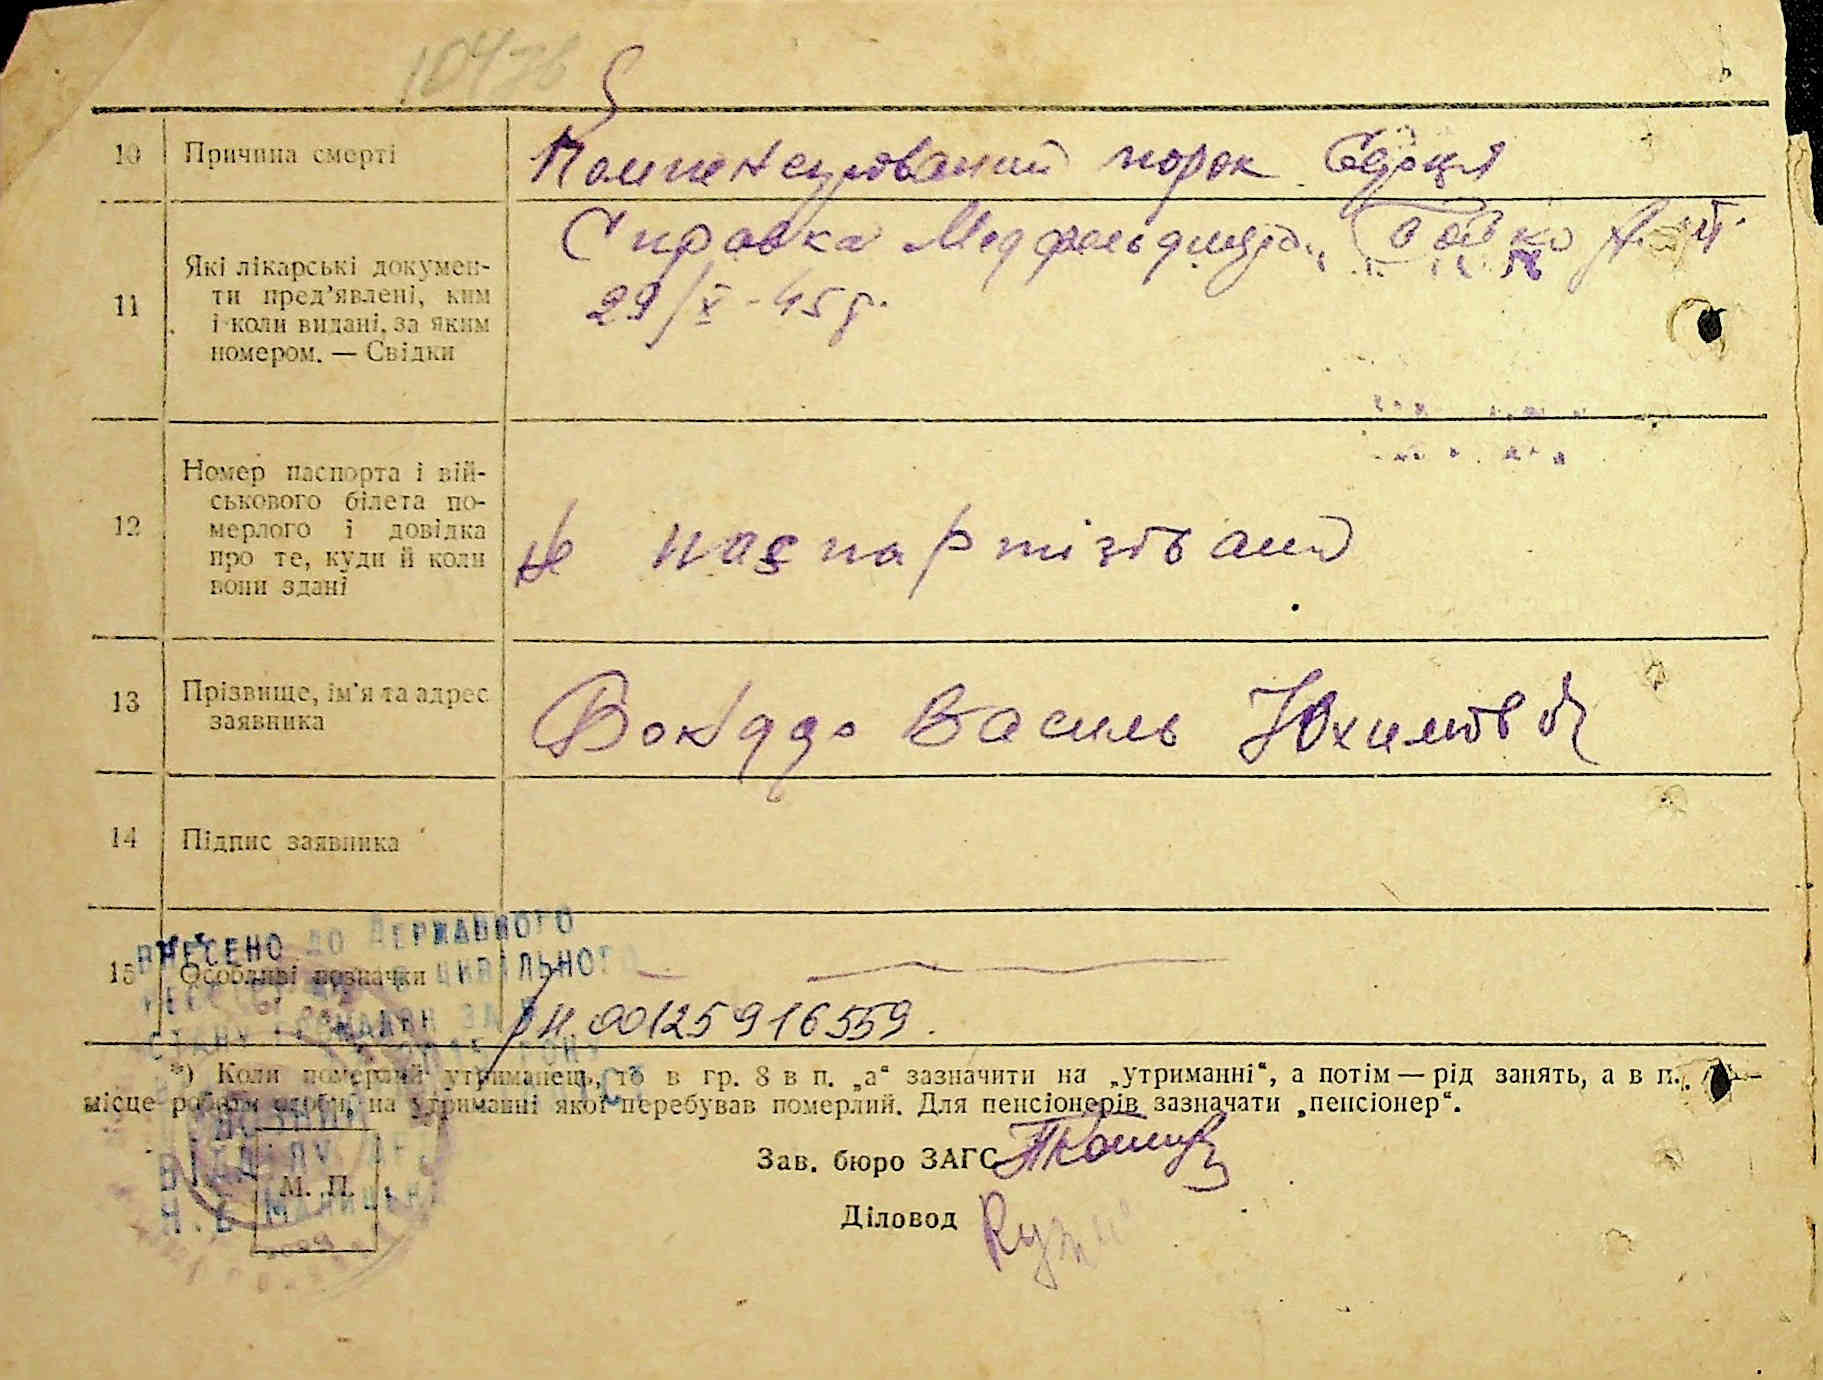 10 Причина смерті Компенсурований порок Сердця
11 Які лікарські докумен-
ти пред'явлені, ким
і коли видані, за яким
номером. — Свідки
Справка Медфельдшера Бойко
29/X-45 р.
12 Номер паспорта і вій-
ськового білета по-
мерлого і довідка
про те, куди й коли
вони здані
не паспартізований
13 Прізвище, ім'я та адрес
заявника
Василь Юхимович
14 Підпис заявника
15 Особливі позначки
ВНЕСЕНО ДО ДЕРЖАВНОГО
ЦИВІЛЬНОГО
СТАНУ ГРОМАДЯН ЗА
00125916559.
*) Коли померлий утриманець, то в гр. 8 в п. „а“ зазначити на „утриманні“, а потім — рід занять, а в п.
місце роботи особи, на утриманні якої перебував померлий. Для пенсіонерів зазначати „пенсіонер“.
ВІДДІЛУ
М. П.
Зав. бюро ЗАГС
Діловод